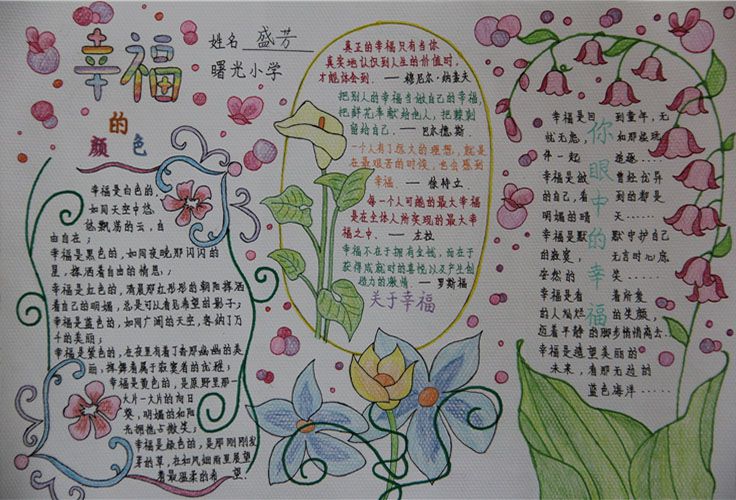 幸福
的
颜色
姓名 盛芳
曙光小学
幸福是白色的，
如同天空中悠
悠飘荡的云，自
由自在；
幸福是黑色的，如同夜晚那闪闪的
星，挥洒着自由的情思；
幸福是红色的，清晨那红彤彤的朝阳挥洒
着自己的明媚，总是可以看见希望的影子；
幸福是蓝色的，如同广阔的天空，容纳了万
千的美丽；
幸福是紫色的，在夜里有着丁香那幽幽的美
丽，挥舞着属于寂寞者的忧郁；
幸福是黄色的，是原野里那一
大片一大片的向日
葵，明媚的如阳
光拥抱占微笑；
幸福是绿色的，是那刚刚发
芽的草，在和风细雨里展望
着最温柔的希望。
真正的幸福只有当你
真实地认识到人生的价值时，
才能体会到。——穆尼尔·纳素夫
把别人的幸福当做自己的幸福，
把鲜花奉献给他人，把棘刺
留给自己。——巴尔德斯
一个人有了远大的理想，就是
在最艰苦的时候，也会感到
幸福。——徐特立
每一个人可能的最大幸福
是在全体人所实现的最大幸
福之中。——左拉
幸福不在于拥有金钱，而在于
获得成就时的喜悦以及产生创
造力的激情。——罗斯福
关于幸福
你眼中的幸福
幸福是回 到童年，无
忧无虑， 如那些玩
伴一起 追逐……
幸福是做 曾经优异
的自己，看 到的都是
明媚的晴 天……
幸福是默 默守护自己
的寂寞， 无言时心底
安然的 笑……
幸福是看 着所爱
的人灿烂 的笑颜，
迈着平静的脚步悄悄离去……
幸福是遥望美丽的
未来，看那无边的
蓝色海洋……